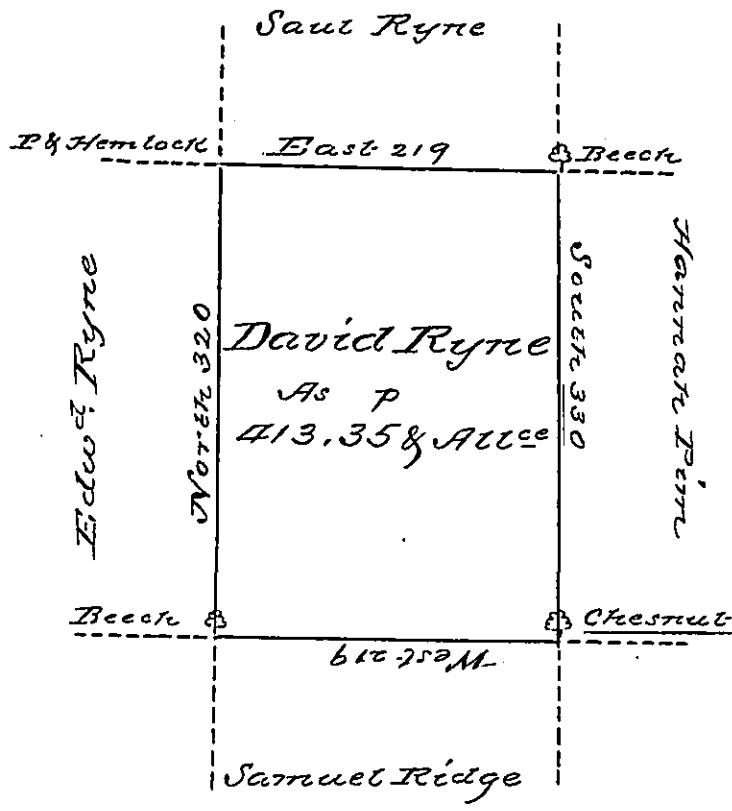 Saul Ryne
P & Hemlock
East 219
Beech
Edwd. Ryne
North 320
David Ryne
As p
413.35 & Allce
South 330
Hannah Pim
Beech
Chesnut
West 219
Samuel Ridge